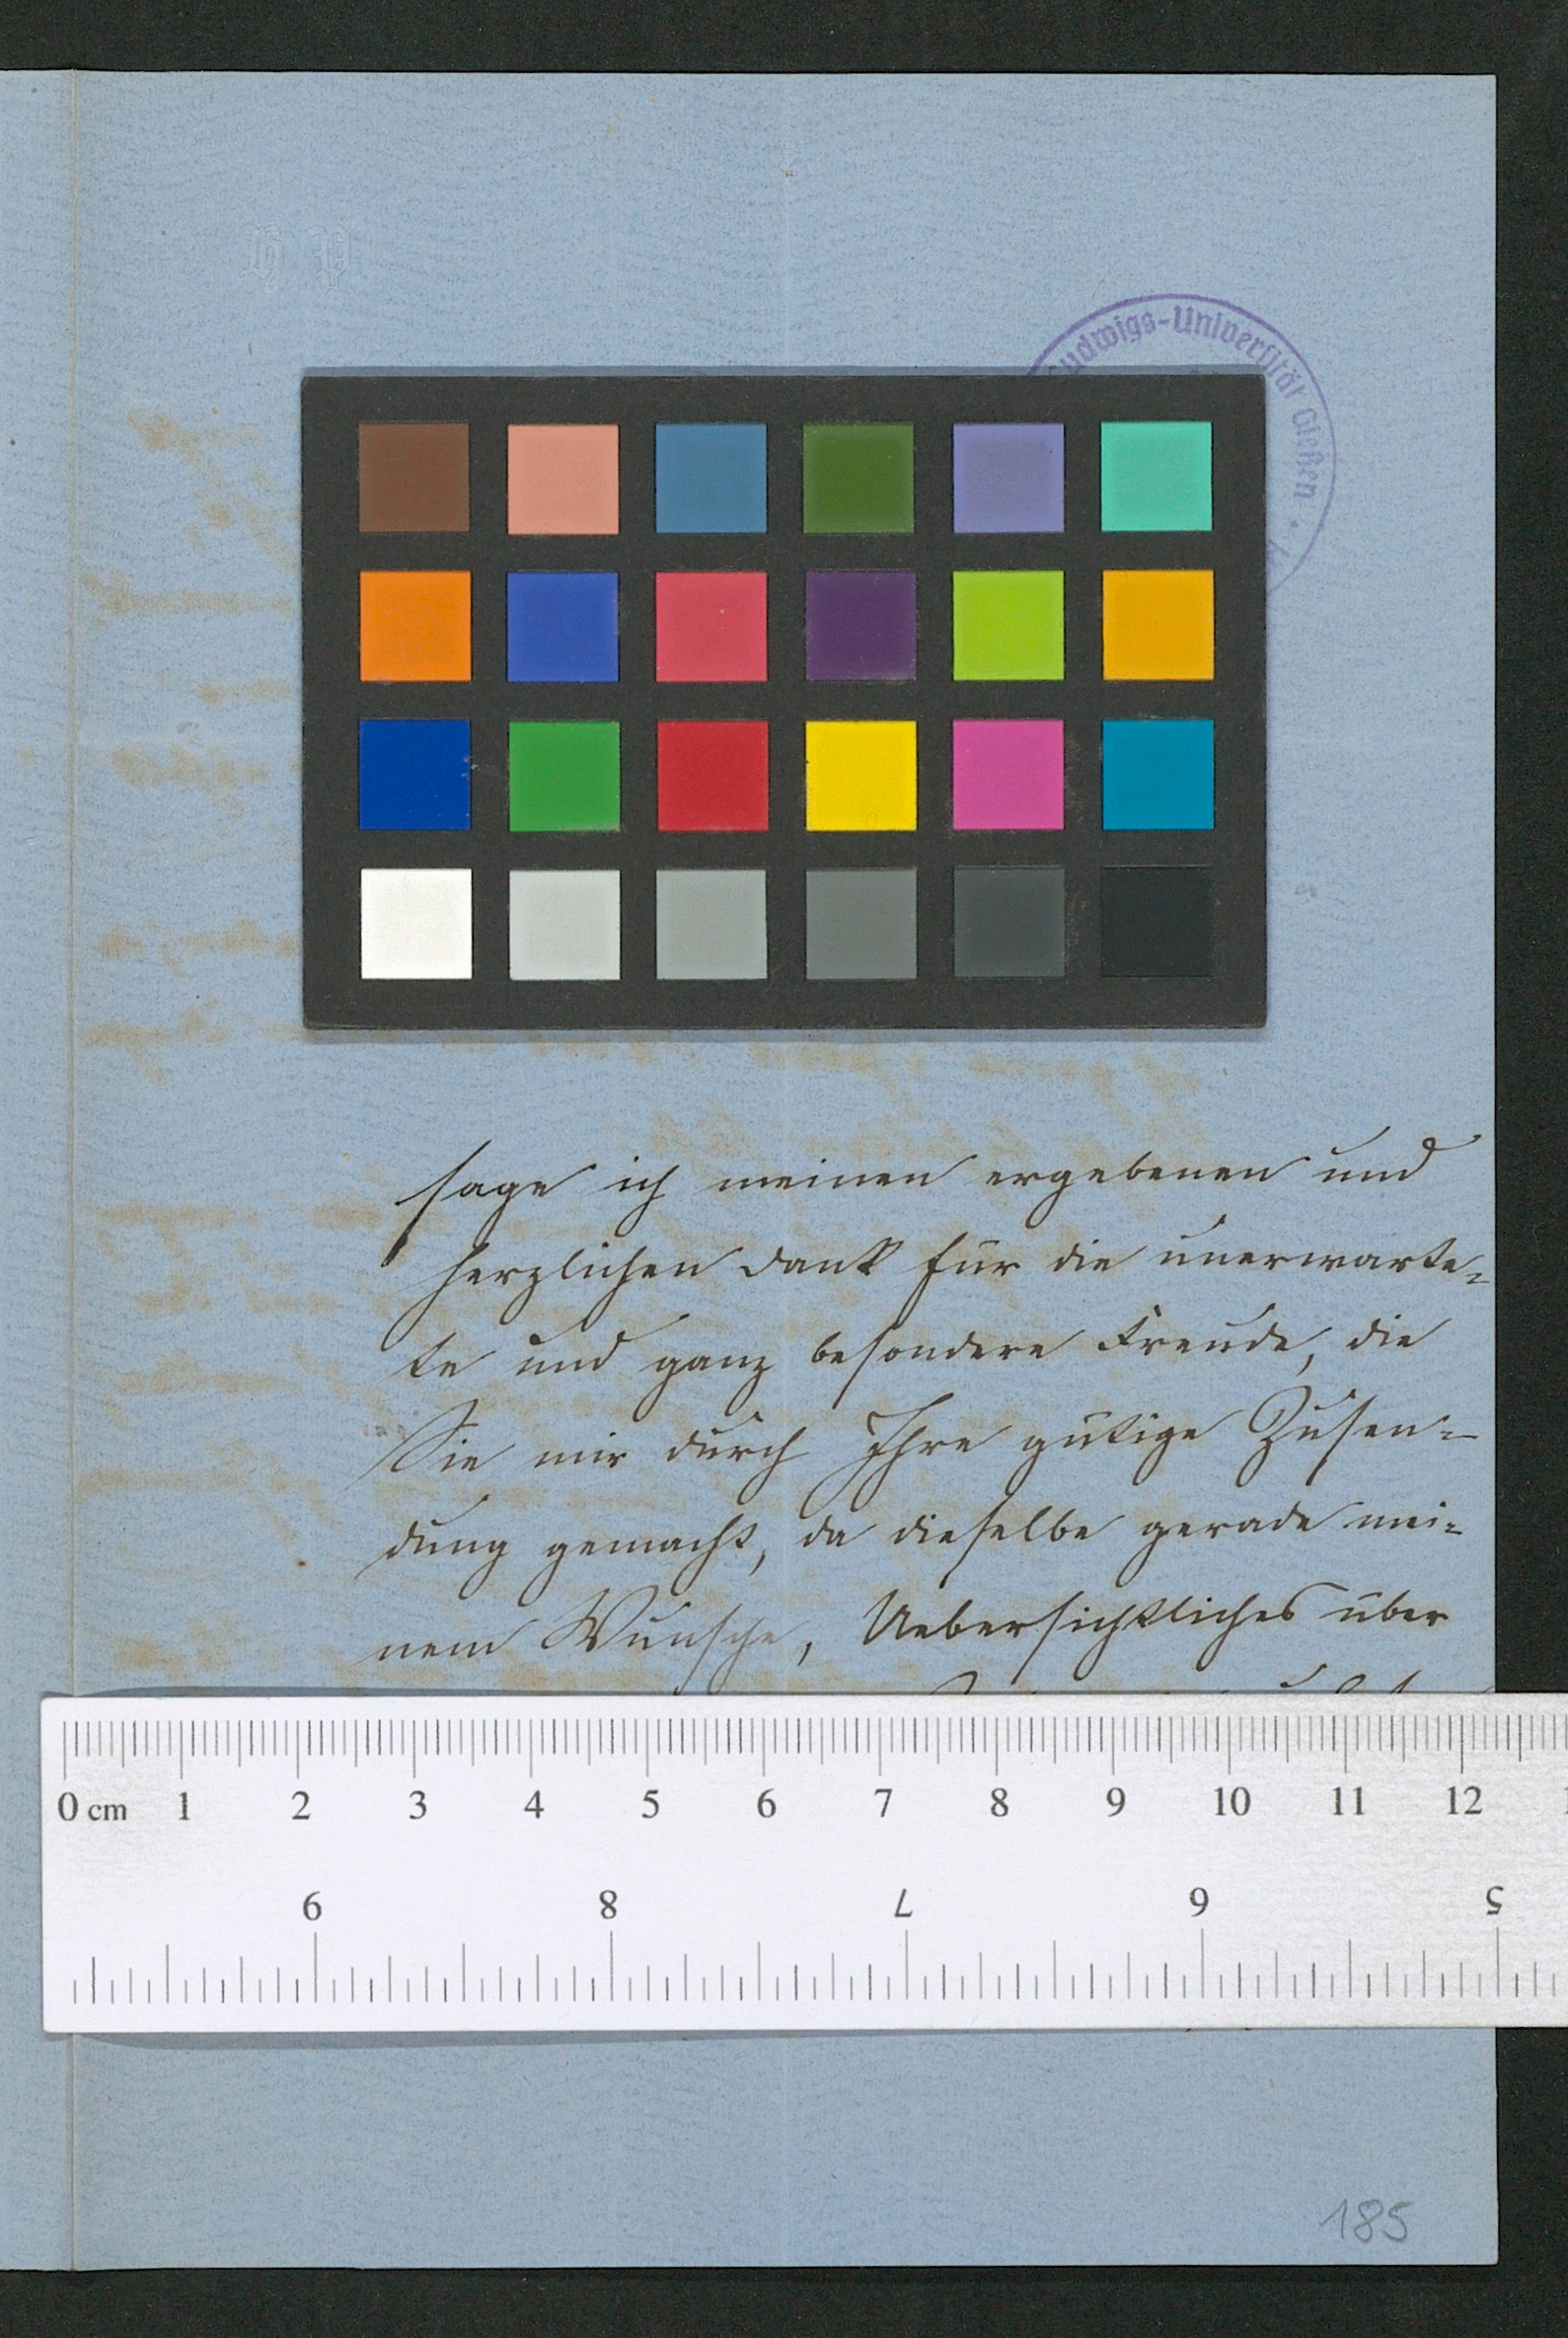 H P
Ludwigs-Universität Gießen ·
sage ich meinen ergebenen und
herzlichen Dank für die unerwarte-
te und ganz besondere Freude, die
Sie mir durch Ihre gütige Zusen-
dung gemacht, da dieselbe gerade mei-
nem Wunsche, Uebersichtliches über
0 cm 1 2 3 4 5 6 7 8 9 10 11 12
9 8 7 6 5
185